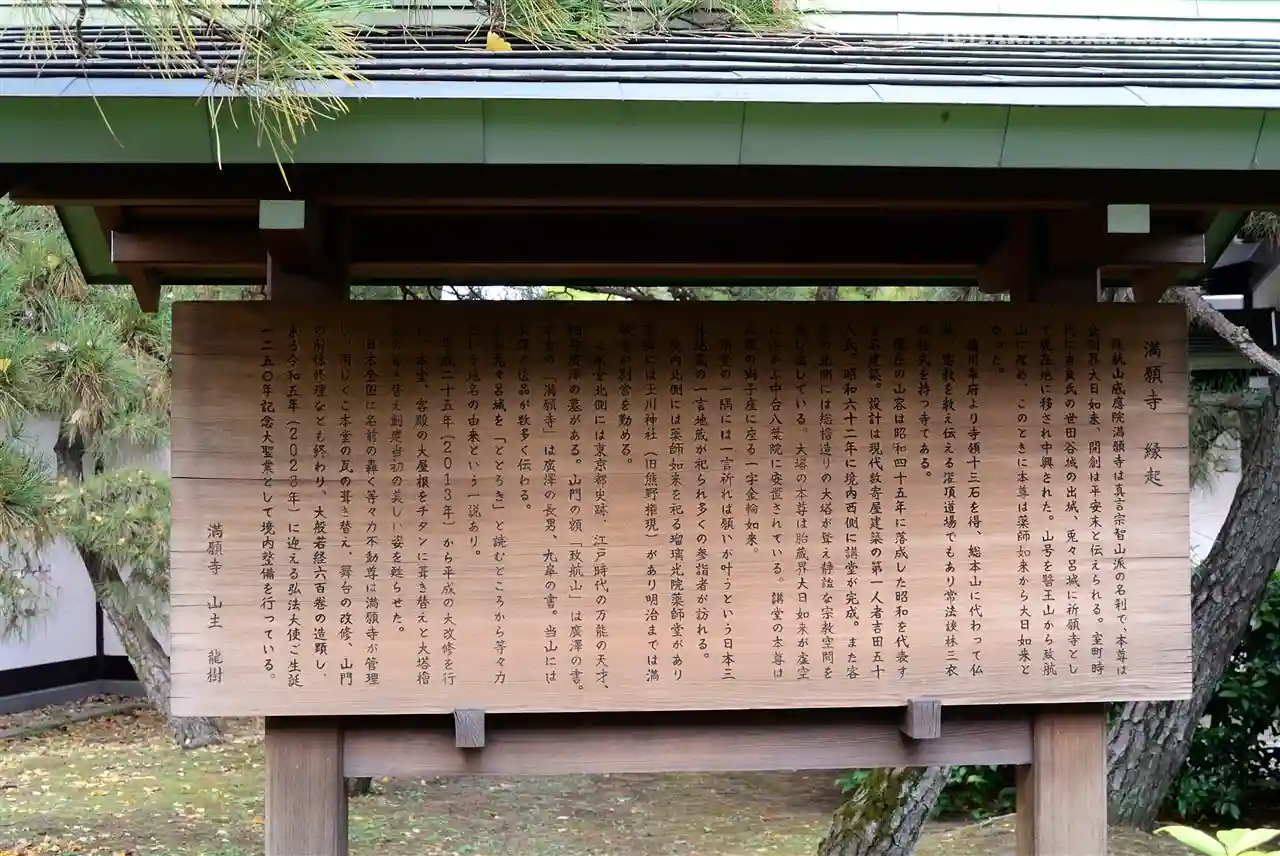 満願寺 縁起
致航山感應院満願寺は真言宗智山派の名刹で、本尊は
金剛界大日如来、開創は平安末と伝えられる。室町時
代に吉良氏の世田谷城の出城、兎々呂城に祈願寺とし
て現在地に移され中興された。山号を醫王山から致航
山に改め、このときに本尊は薬師如来から大日如来と
なった。
徳川幕府より寺領十三石を得、総本山に代わって仏
密教を教え伝える灌頂道場でもあり常法談林三衣
格式を持つ寺である。
現在の山容は昭和四十五年に落成した昭和を代表す
る名建築。設計は現代数寄屋建築の第一人者吉田五十
八氏。昭和六十二年に境内西側に講堂が完成。また客
殿の北側には総檜造りの大塔が聳え静謐な宗教空間を
醸し出している。大塔の本尊は胎蔵界大日如来が虚空
に浮かぶ中台八葉院に安置されている。講堂の本尊は
の獅子座に座る一字金輪如来。
講堂の一隅には一言祈れば願いが叶うという日本三
体地蔵の一言地蔵が祀られ多くの参詣者が訪れる。
境内北側には薬師如来を祀る瑠璃光院薬師堂があり
には玉川神社（旧熊野権現）があり明治までは満
願寺が別当を勤める。
北側には東京都史跡、江戸時代の万能の天才、
細井廣澤の墓がある。山門の額「致航山」は廣澤の書。
の「満願寺」は廣澤の長男、九皐の書。当山には
廣澤の遺品が数多く伝わる。
兎々呂城を「とどろき」と読むところから等々力
という地名の由来という一説あり。
平成二十五年（２０１３年）から平成の大改修を行
い本堂、客殿の大屋根をチタンに葺き替えと大塔檜
の葺き替え創建当初の美しい姿を甦らせた。
日本全国に名前の轟く等々力不動尊は満願寺が管理
し、同じくご本堂の瓦の葺き替え、舞台の改修、山門
の解体修理なども終わり、大般若経六百巻の造顕し、
来る令和五年（２０２３年）に迎える弘法大使ご生誕
一二五〇年記念大聖業として境内整備を行っている。
満願寺 山主 龍樹